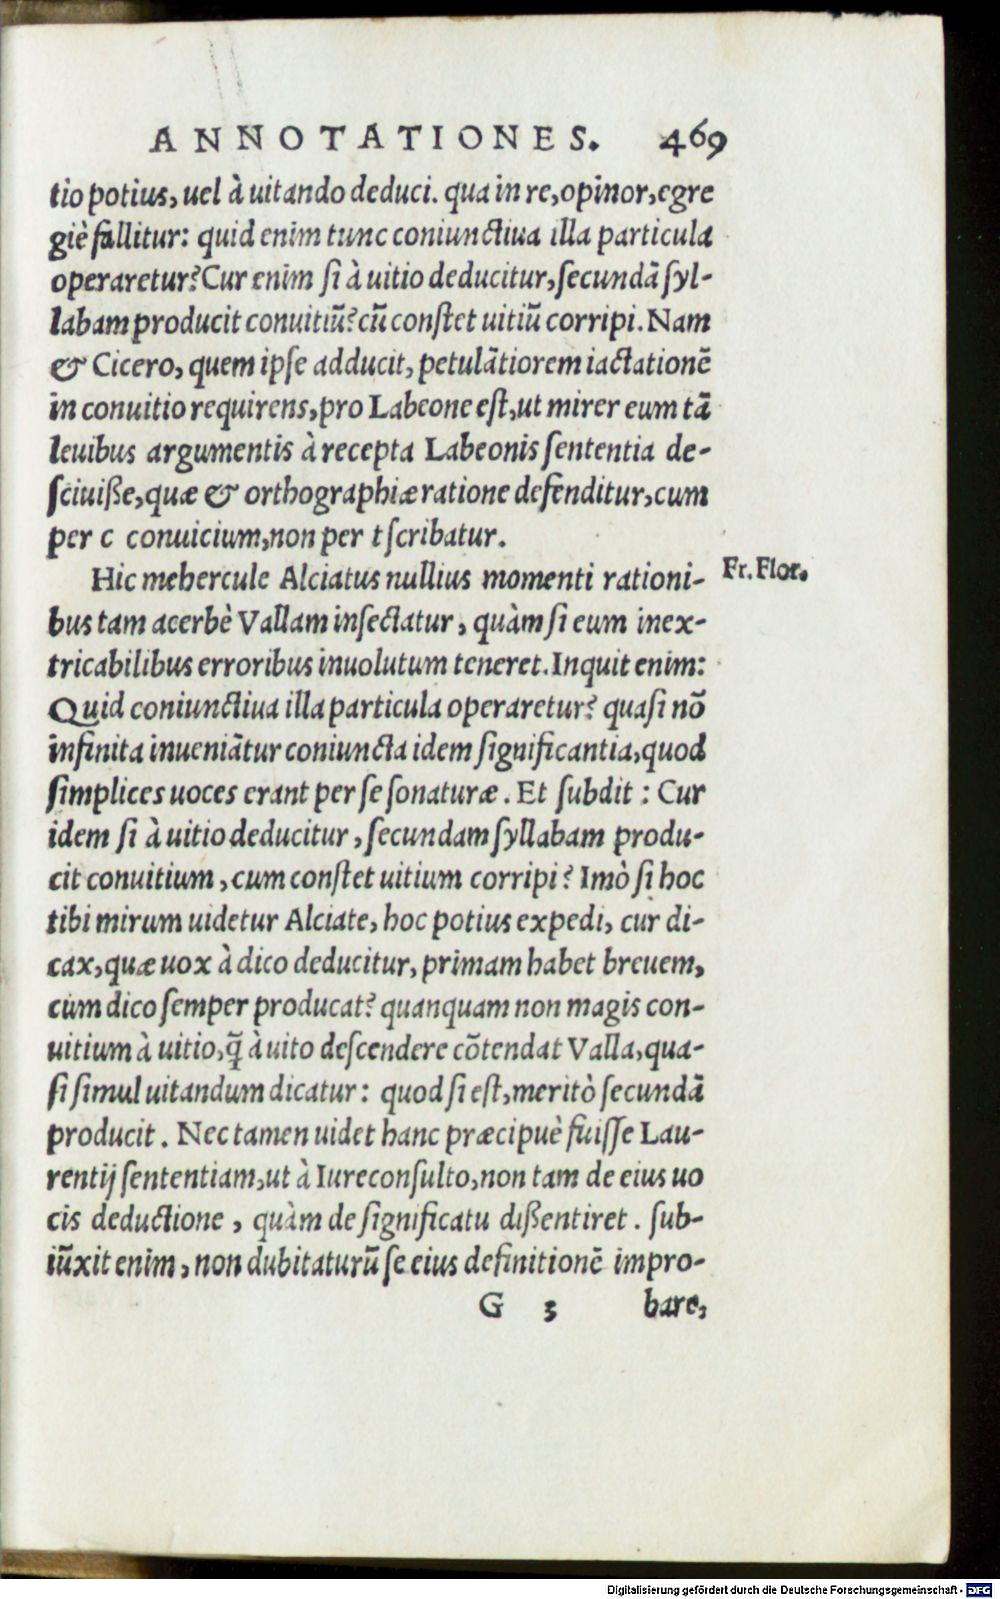 ANNOTATIONES. 469
tio potius, uel à uitando deduci. qua in re, opinor, egre
giè fallitur: quid enim tunc coniunctiua illa particula
operaretur? Cur enim si à uitio deducitur, secundã syl-
labam producit conuitiũ? cũ constet uitiũ corripi. Nam
& Cicero, quem ipse adducit, petulãtiorem iactationẽ
in conuitio requirens, pro Labeone est, ut mirer eum tã
leuibus argumentis à recepta Labeonis sententia de-
sciuiße, quæ & orthographiæ ratione defenditur, cum
per c conuicium, non per t scribatur.
Hic mehercule Alciatus nullius momenti rationi- Fr. Flor.
bus tam acerbè Vallam insectatur, quàm si eum inex-
tricabilibus erroribus inuolutum teneret. Inquit enim:
Quid coniunctiua illa particula operaretur? quasi nõ
infinita inueniãtur coniuncta idem significantia, quod
simplices uoces erant per se sonaturæ. Et subdit: Cur
idem si à uitio deducitur, secundam syllabam produ-
cit conuitium, cum constet uitium corripi? Imò si hoc
tibi mirum uidetur Alciate, hoc potius expedi, cur di-
cax, quæ uox à dico deducitur, primam habet breuem,
cùm dico semper producat? quanquam non magis con-
uitium à uitio, q̃ à uito descendere cõtendat Valla, qua-
si simul uitandum dicatur: quod si est, meritò secundã
producit. Nec tamen uidet hanc præcipuè fuisse Lau-
rentij sententiam, ut à Iureconsulto, non tam de eius uo
cis deductione, quàm de significatu dißentiret. sub-
iũxit enim, non dubitaturũ se eius definitionẽ impro-
G 3 bare,
Digitalisierung gefördert durch die Deutsche Forschungsgemeinschaft - DFG